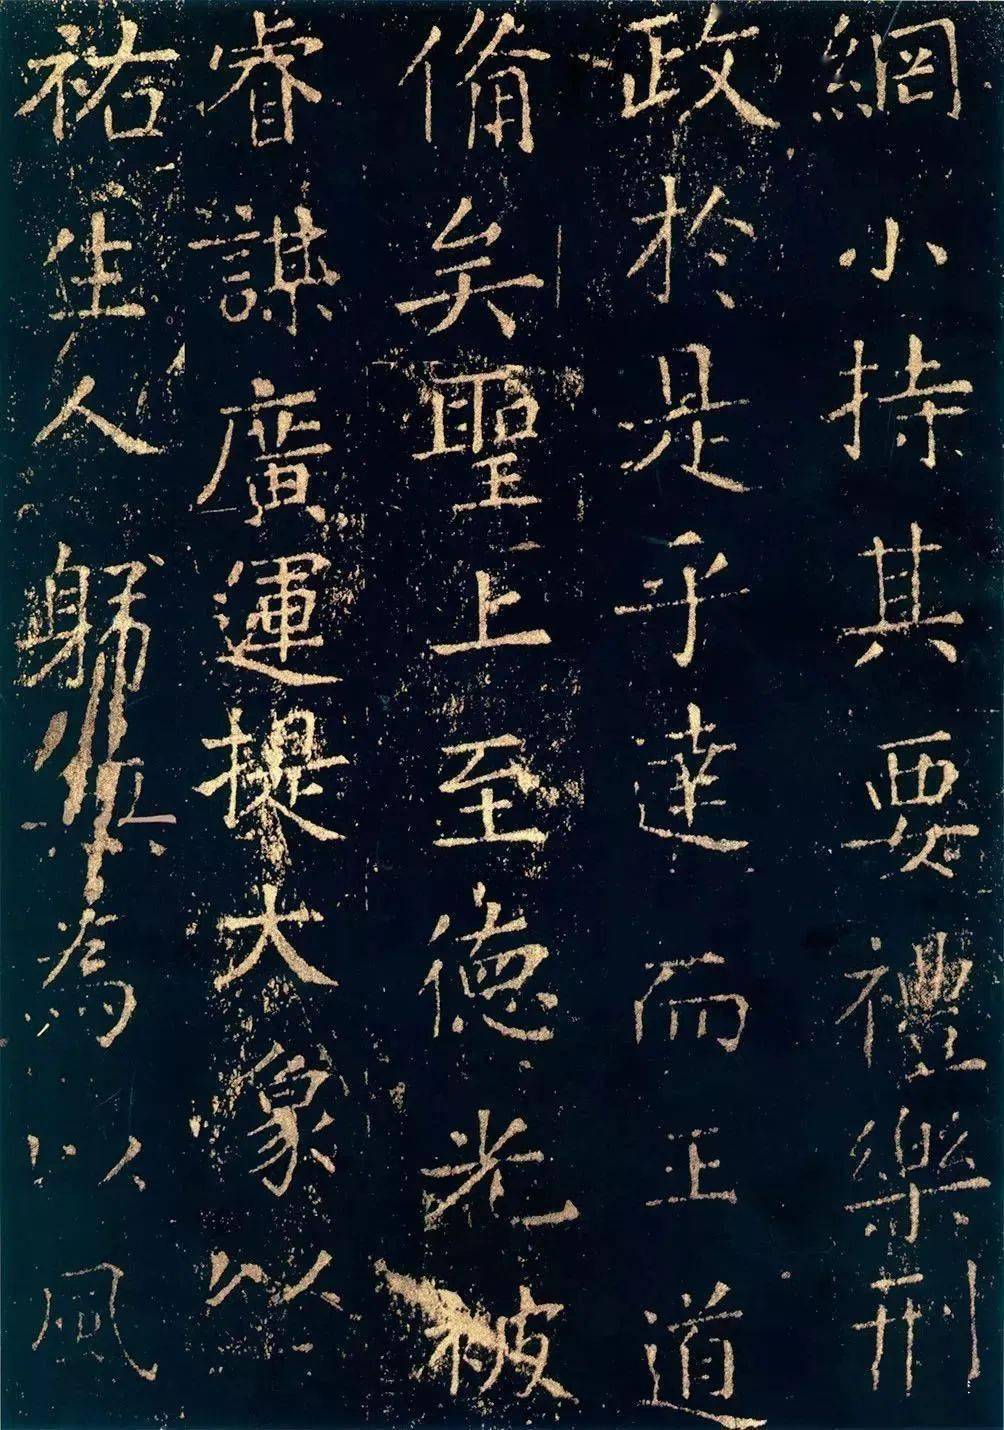 網小持其要禮樂刑
政於是乎達而王道
備矣聖上至德光被
睿謀廣運提大象以
祐生人躬無為以風